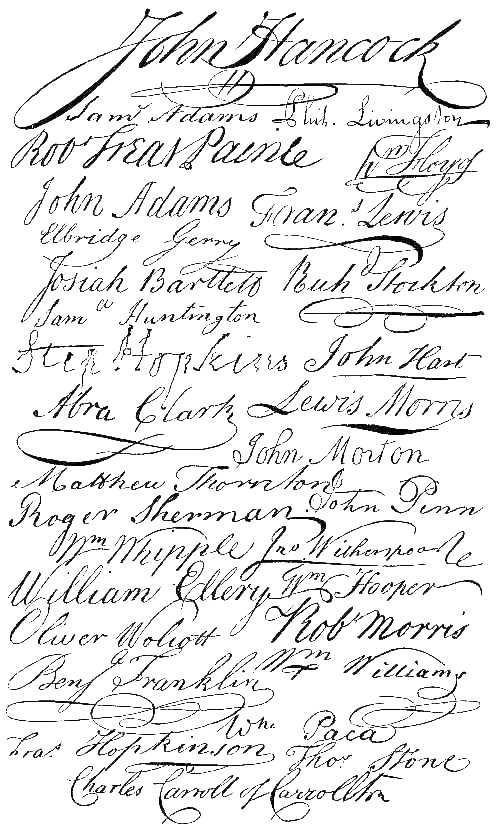 John Hancock
Saml Adams Phil. Livingston
Robt Treat Paine Wm Floyd
John Adams Frans. Lewis
Elbridge Gerry
Josiah Bartlett Richd Stockton
Saml Huntington
Step Hopkins John Hart
Abra Clark Lewis Morris
John Morton
Matthew Thornton
Roger Sherman John Penn
Wm Whipple Jno Witherspoon
William Ellery Wm Hooper
Oliver Wolcott Robt Morris
Benj Franklin Wm Williams
Wm Paca
Fras. Hopkinson Thos Stone
Charles Carroll of Carrollton